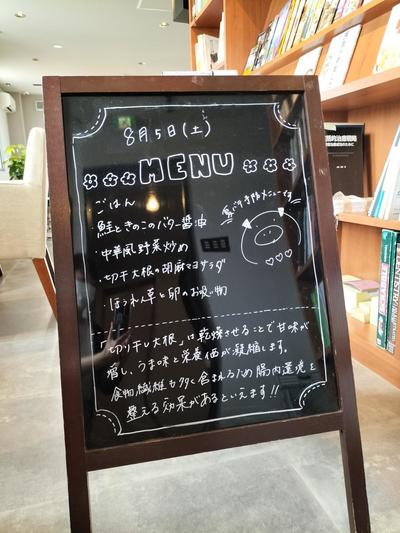 8月5日(土)
MENU
ごはん
・鮭ときのこのバター醤油
・中華風野菜炒め
・切干大根の胡麻マヨサラダ
・ほうれん草と卵のお吸い物
夏バテ予防メニューです
「切り干し大根」は乾燥させることで甘味が
増し、うま味と栄養価が凝縮します。
食物繊維も多く含まれるため腸内環境を
整える効果があるといえます!!